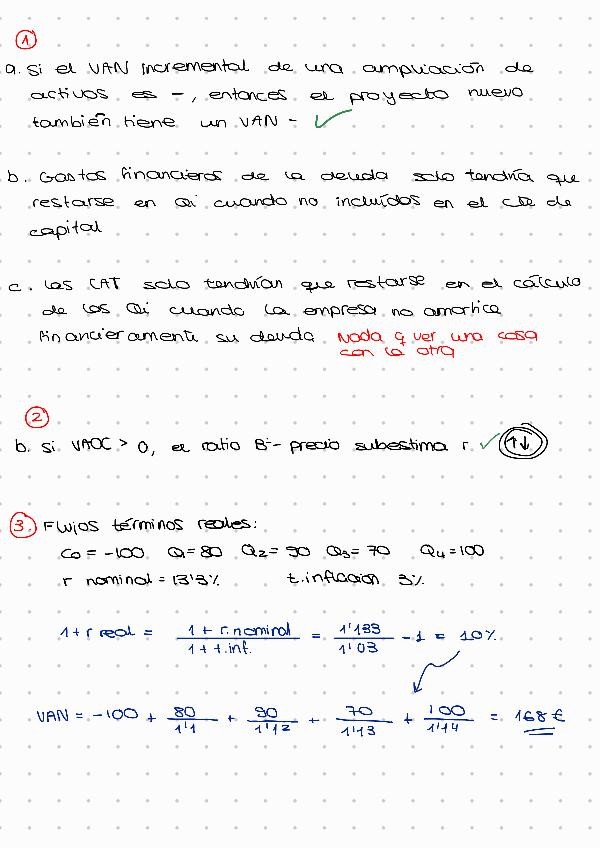 1
a. Si el VAN incremental de una ampliación de
activos es -, entonces el proyecto nuevo
también tiene un VAN - ✓
b. Gastos financieros de la deuda solo tendría que
restarse en Qi cuando no incluídos en el cte de
capital
c. Las CAT solo tendrían que restarse en el cálculo
de los Qi cuando la empresa no amortice
financieramente su deuda Nada q ver una cosa
con la otra
2
b. Si VAOC > 0, el ratio Bº- precio subestima r ✓ ↑↓
3. Flujos términos reales:
Co = -100 Q1 = 80 Q2 = 90 Q3 = 70 Q4 = 100
r nominal = 13'3% t.inflacion 3%
1 + r real = 1 + r.nominal / 1 + t.inf. = 1'133 / 1'03 - 1 = 10%
VAN = -100 + 80 / 1'1 + 90 / 1'1² + 70 / 1'1³ + 100 / 1'1⁴ = 168 €